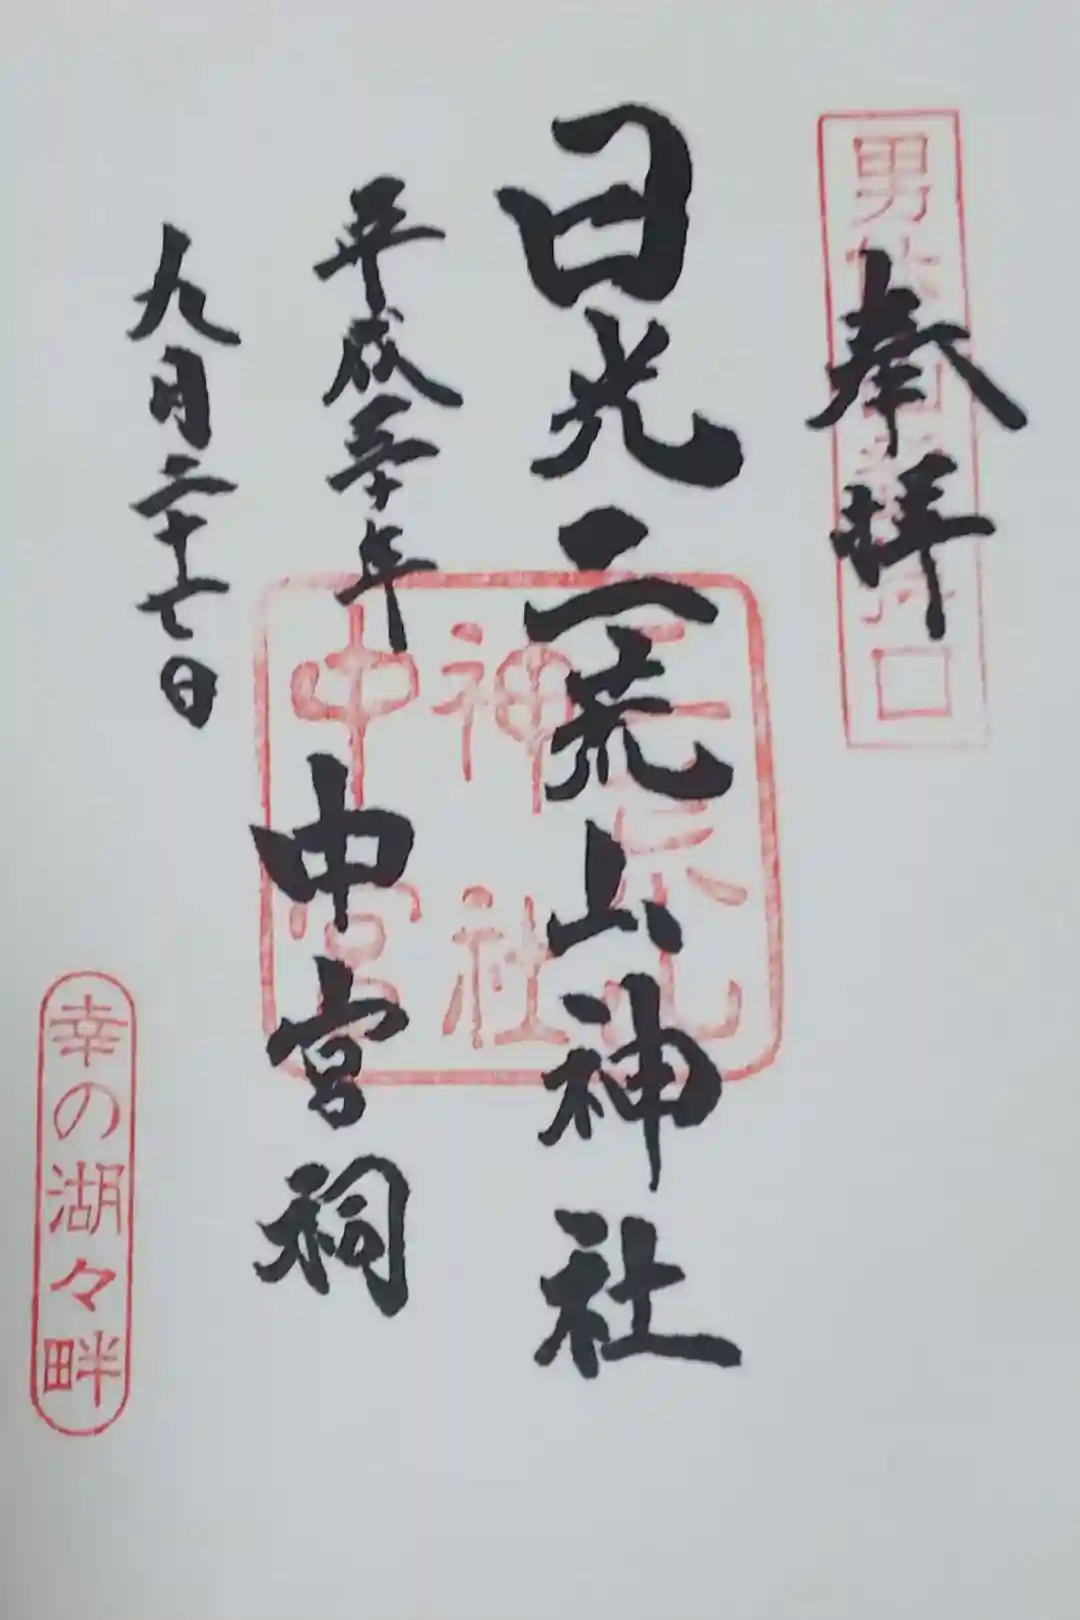 奉拝
男体山登拝口
日光二荒山神社
中宮祠
平成三十年
九月二十七日
二荒山
神社
中宮
幸の湖々畔